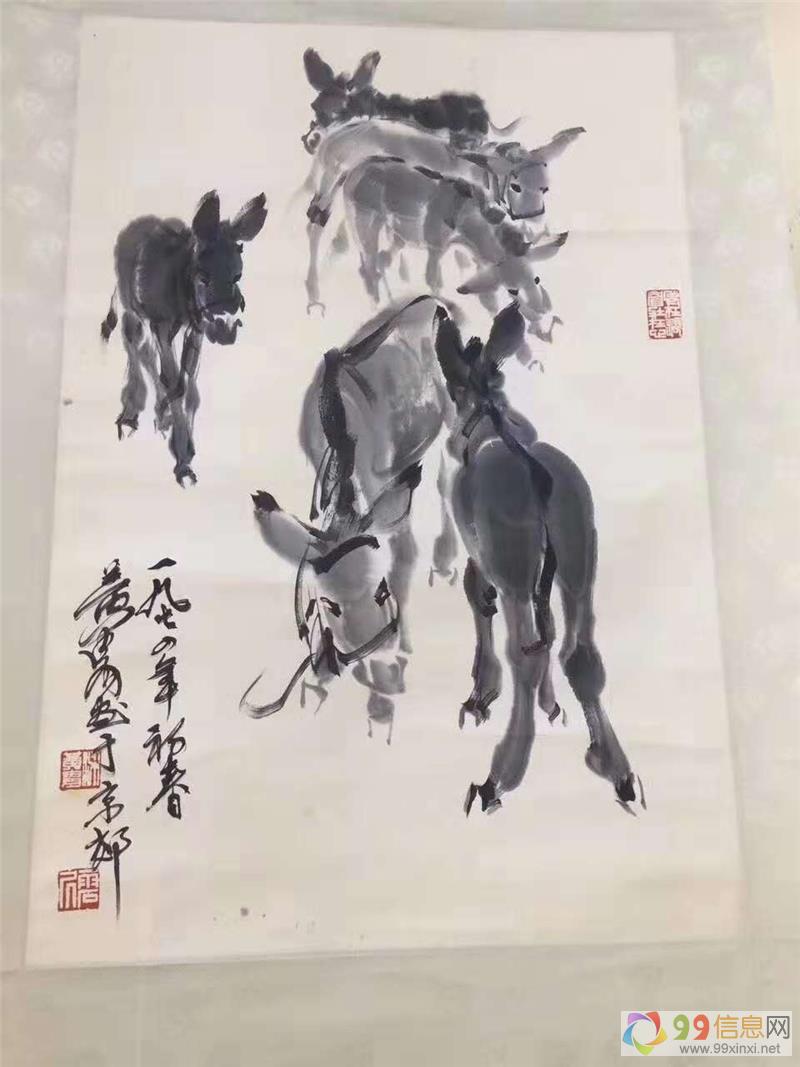 一九七四年初春
黄胄画于京郊
99信息网
www.99xinxi.net